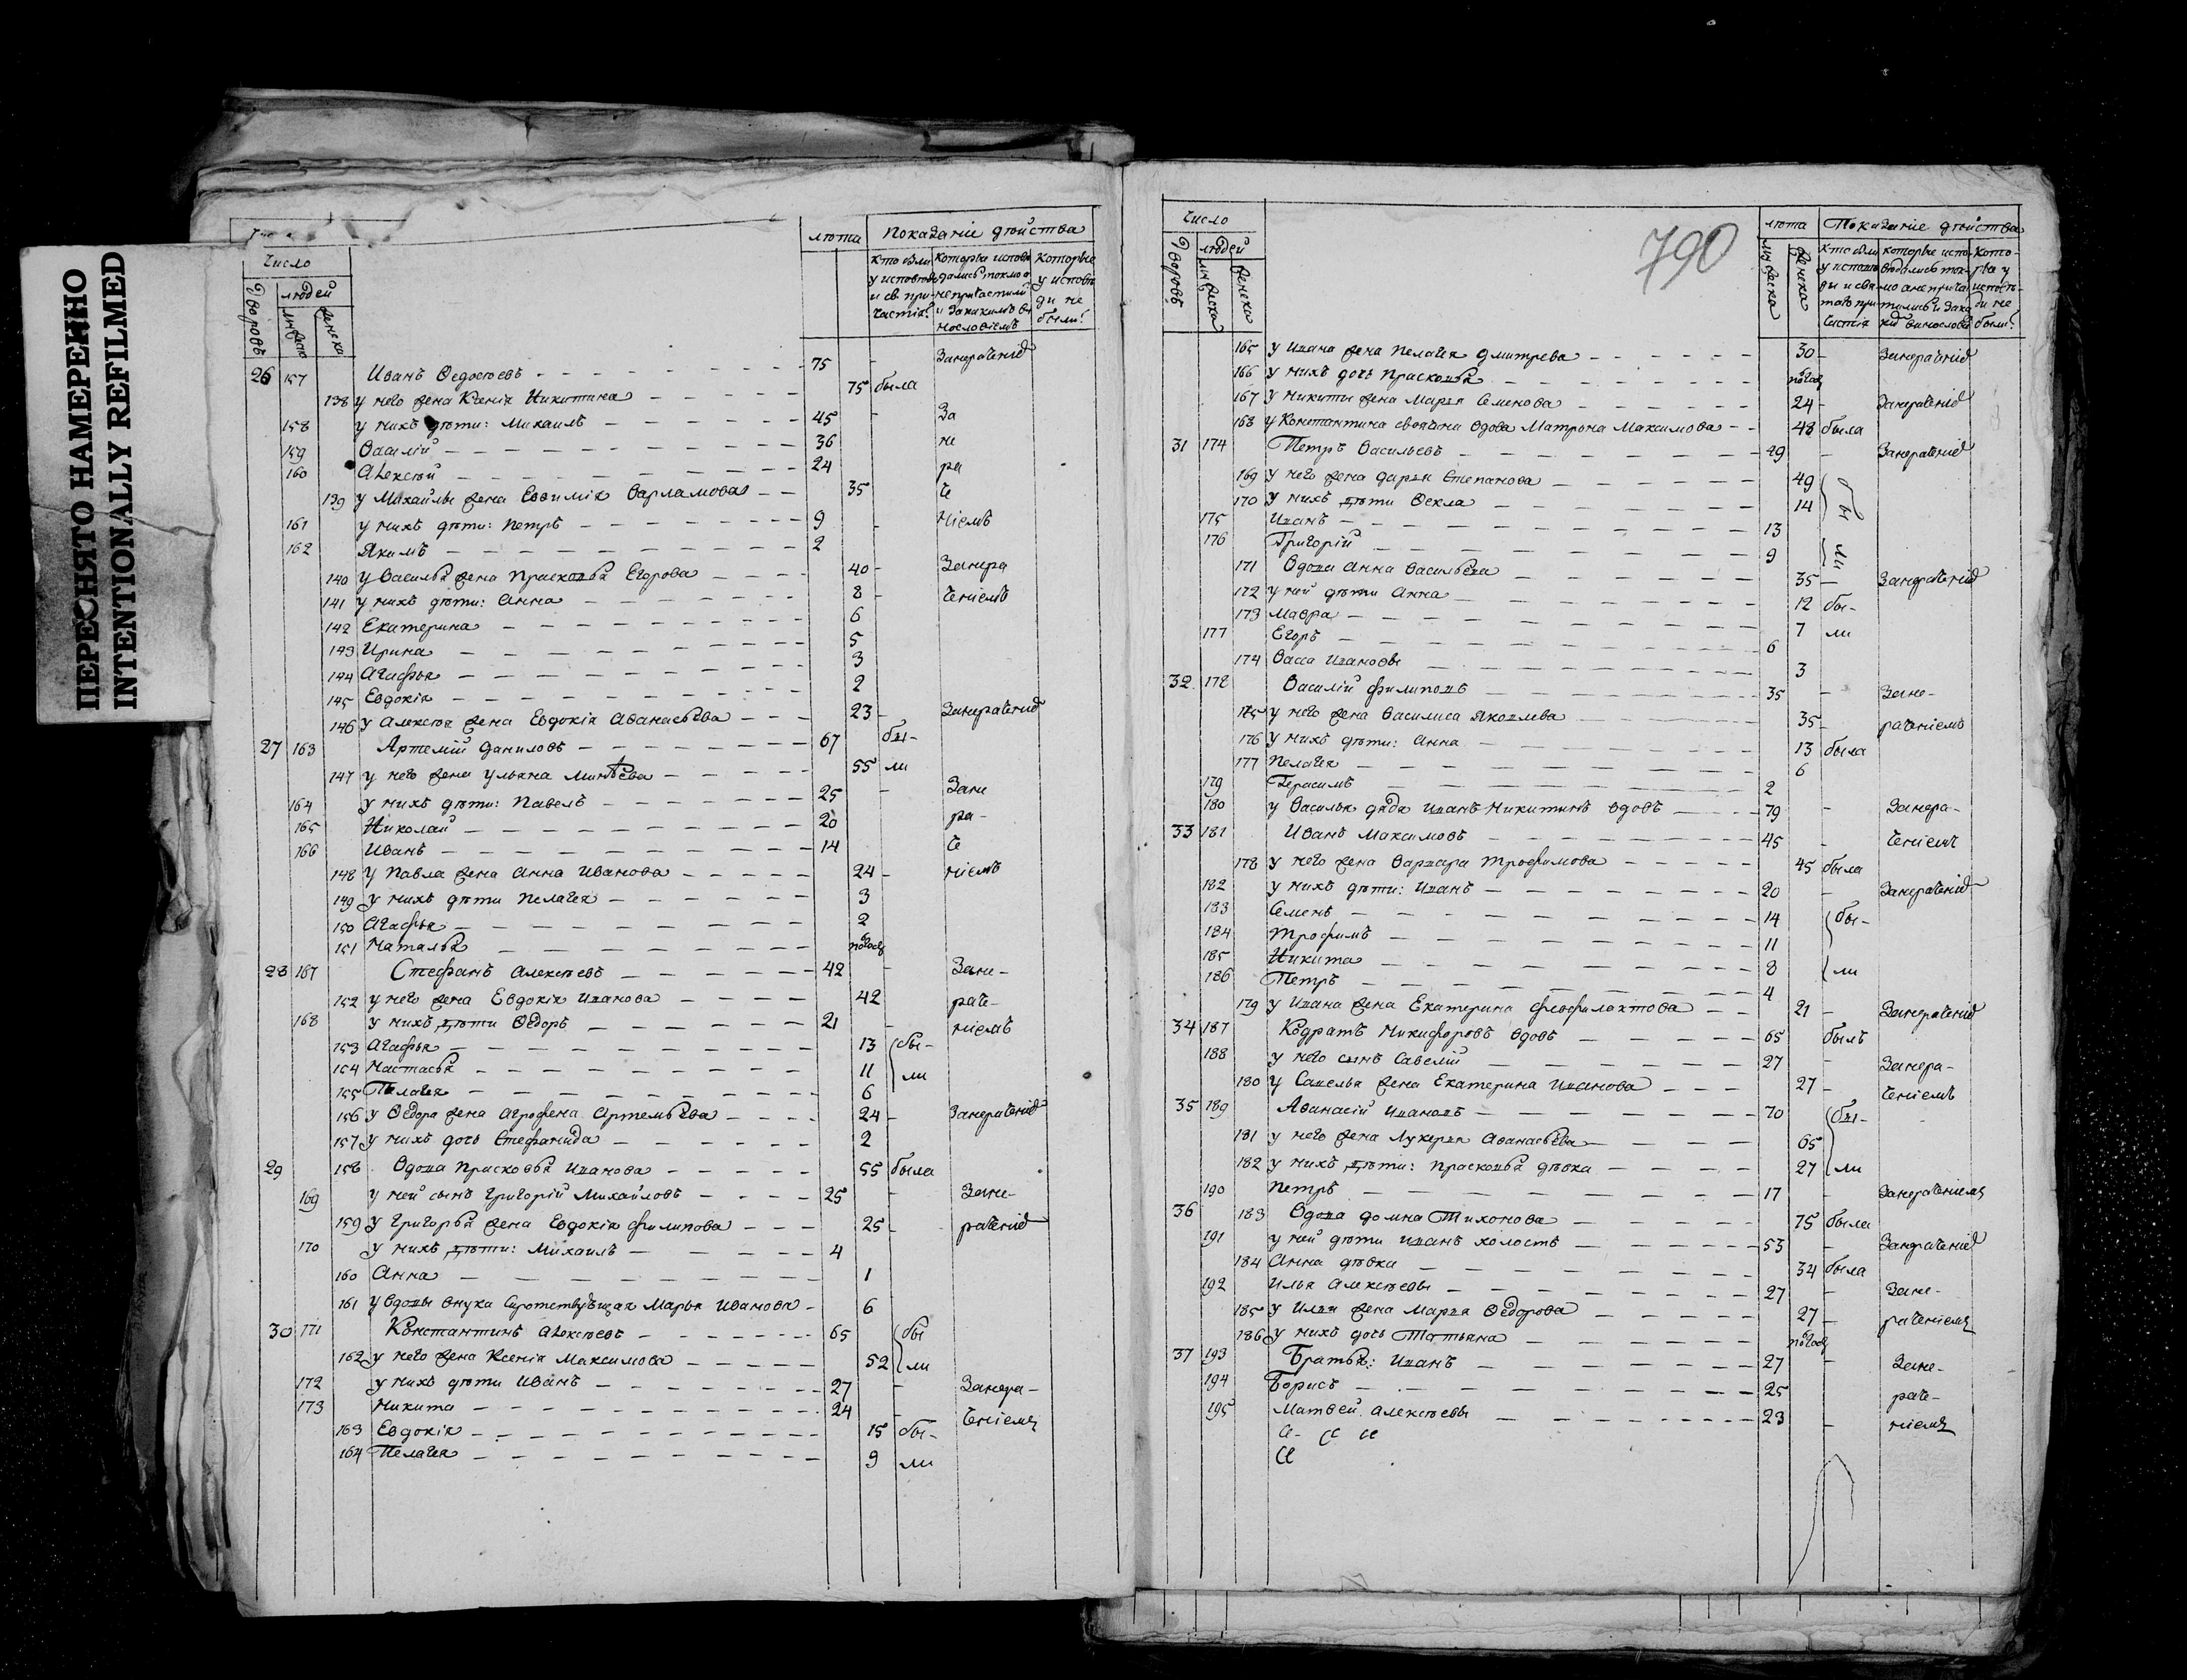 ПЕРЕСНЯТО НАМЕРЕННО
INTENTIONALLY REFILMED
Число
Дворовъ
людей
мужеска
женска
лѣта
Показанiе дѣйства
кто были у исповѣди и св. причастiя?
Которые исповѣдались токмо а не причастились и за какимъ винословiемъ
Которые у исповѣди не были?
26 157 Иванъ Ѳедосѣевъ 75 - Занерачениемъ
138 у него жена Ксенiя Никитина 75 была
158 у нихъ дѣти: Михаилъ 45 - За
159 Василiй 36 не
160 Алексѣй 24 ра
139 у Михайлы жена Евѳимiя Варламова 35 - че
161 у нихъ дѣти: Петръ 9 - нiемъ
162 Якимъ 2
140 у Василья жена Прасковья Егорова 40 - Занера
141 у нихъ дѣти: Анна 8 - ченiемъ
142 Екатерина 6
143 Ирина 5
144 Агафья 3
145 Евдокiя 2
146 у Алексѣя жена Евдокiя Аѳанасьева 23 - Занераченiе
27 163 Артемiй Даниловъ 67 бы-
147 у него жена Ульяна Минѣева 55 ли
164 у нихъ дѣти: Павелъ 25 - Зане
165 Николай 20 ра-
166 Иванъ 14 че
148 у Павла жена Анна Иванова 24 - нiемъ
149 у нихъ дѣти Пелагея 3
150 Агафья 2
151 Наталья полгод
28 167 Стефанъ Алексѣевъ 42 - Зане-
152 у него жена Евдокiя Иванова 42 раче-
168 у нихъ дѣти Ѳедоръ 21 - нiемъ
153 Агафья 13 бы-
154 Настасья 11 ли
155 Пелагея 6
156 у Ѳедора жена Агрофена Артемьева 24 - Занераченiе
157 у нихъ дочь Стефанида 2
29 158 Вдова Прасковья Иванова 55 была
169 у ней сынъ Григорiй Михайловъ 25 - Зане-
159 у Григорья жена Евдокiя Филипова 25 - раченiе
170 у нихъ дѣти: Михаилъ 4
160 Анна 1
161 у вдовы внука Сиротствующая Марья Иванова 6
30 171 Константинъ Алексѣевъ 65 бы
162 у него жена Ксенiя Максимова 52 ли
172 у нихъ дѣти Иванъ 27 - Занера-
173 Никита 24 - ченiемъ
163 Евдокiя 15 бы-
164 Пелагея 9 ли
790
Число
Дворовъ
людей
мужеска
женска
лѣта
мужеска
женска
Показанiе дѣйства
кто были у исповѣди и святаго причастiя
которые исповѣдались токмо а не причастились и за каким винослови
которые у исповѣди не были?
165 у Ивана жена Пелагея Дмитрева 30 - Занераченiе
166 у нихъ дочь Прасковья полгод
167 у Никиты жена Марья Семенова 24 - Занераченiе
168 у Константина своячина вдова Матрона Максимова 48 была
31 174 Петръ Васильевъ 49 - Занераченiе
169 у него жена Дарья Степанова 49 бы
170 у нихъ дѣти Ѳекла 14
175 Иванъ 13
176 Григорiй 9 ли
171 Вдова Анна Васильева 35 - Занераченiе
172 у ней дѣти Анна 12 бы-
173 Мавра 7 ли
177 Егоръ 6
174 Васса Ивановы 3
32 178 Василiй Филиповъ 35 - Зане-
175 у него жена Василиса Яковлева 35 - раченiемъ
176 у нихъ дѣти: Анна 13 была
177 Пелагея 6
179 Герасимъ 2
180 у Василья дядя Иванъ Никитинъ вдовъ 79 - Занера-
33 181 Иванъ Максимовъ 45 - ченiемъ
178 у него жена Варвара Трофимова 45 была
182 у нихъ дѣти: Иванъ 20 - Занераченiе
183 Семенъ 14 бы-
184 Трофимъ 11
185 Никита 8 ли
186 Петръ 4
179 у Ивана жена Екатерина Феофилактова 21 - Занераченiе
34 187 Кодратъ Никифоровъ вдовъ 65 былъ
188 у него сынъ Савелiй 27 - Занера-
180 у Савелья жена Екатерина Иванова 27 - ченiемъ
35 189 Аѳанасiй Ивановъ 70 бы-
181 у него жена Лукерья Аѳанасьева 65
182 у нихъ дѣти: Прасковья дѣвка 27 ли
190 Петръ 17 - Занераченiемъ
36 183 Вдова Домна Тихонова 75 была
191 у ней дѣти Иванъ холостъ 53 - Занераченiе
184 Анна дѣвка 34 была
192 Илья Алексѣевы 27 - Зане-
185 у Ильи жена Марья Ѳедорова 27 - раченiемъ
186 у нихъ дочь Татьяна полгод
37 193 Братья: Иванъ 27 - Зане-
194 Борисъ 25 раче-
195 Матвей Алексѣевы 23 - нiемъ